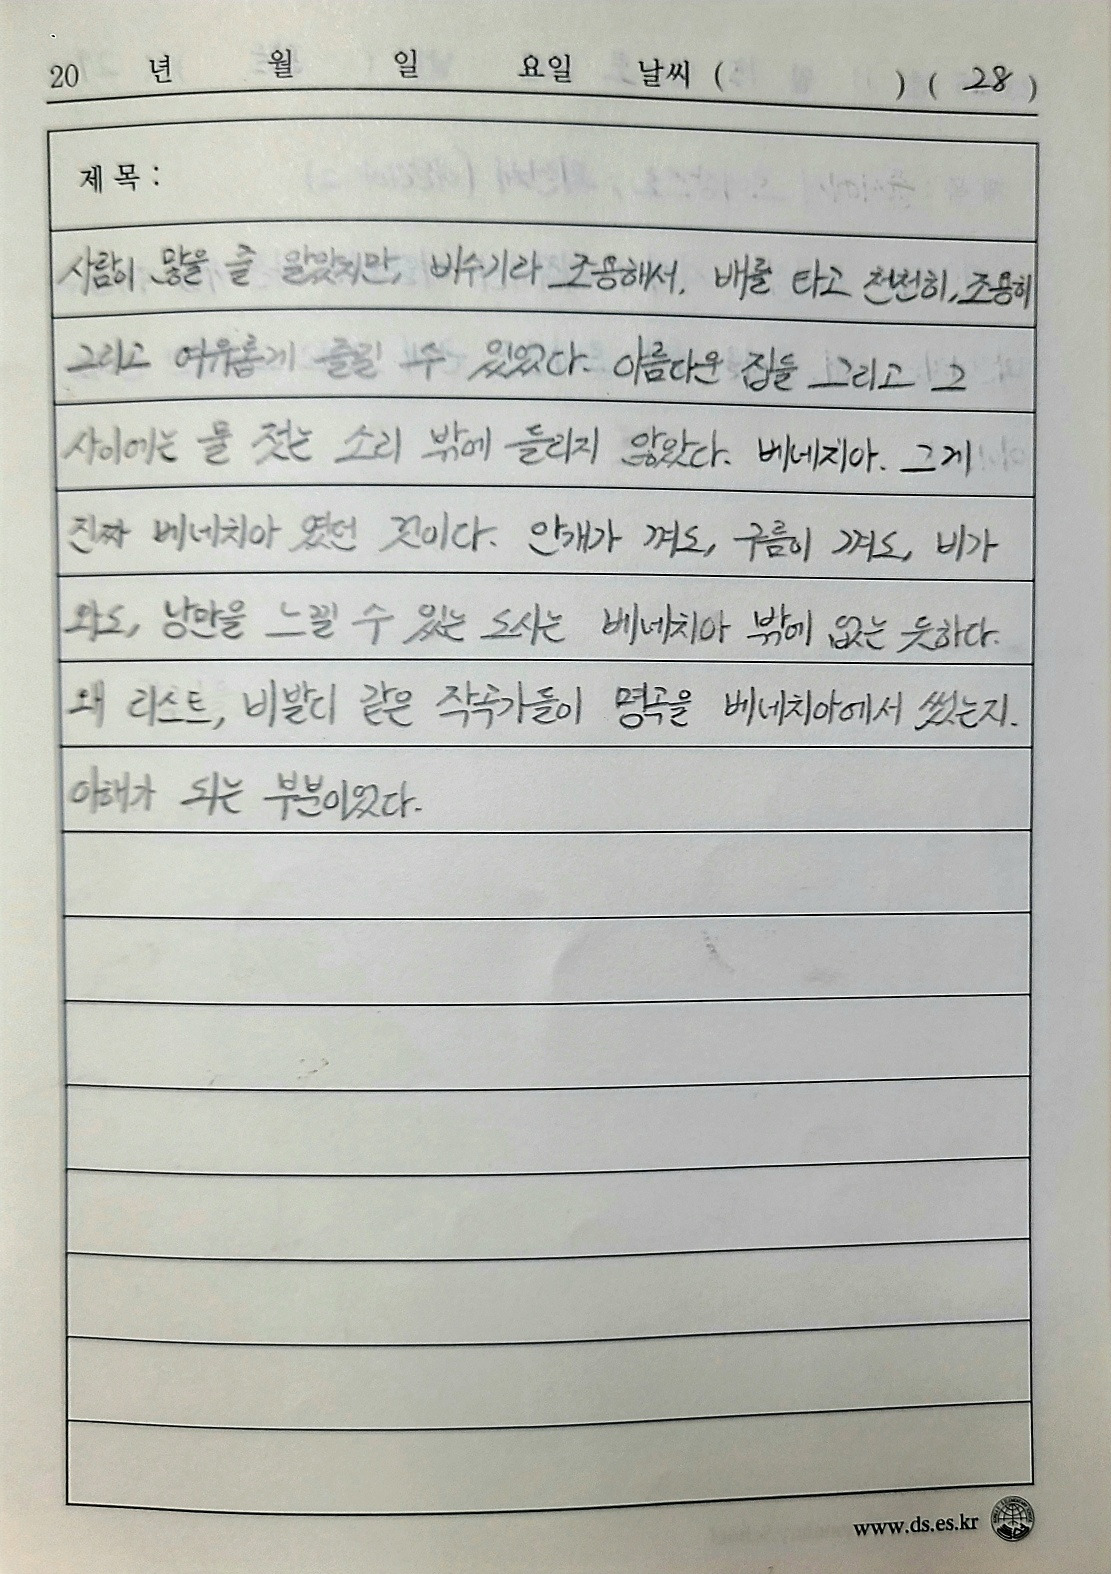 20 년 월 일 요일 날씨 ( ) ( 28 )
제 목 :
사람이 많을 줄 알았지만, 비수기라 조용해서, 배를 타고 천천히, 조용히
그리고 여유롭게 즐길 수 있었다. 아름다운 집들 그리고 그
사이에는 물 젓는 소리 밖에 들리지 않았다. 베네치아. 그게
진짜 베네치아 였던 것이다. 안개가 껴도, 구름이 껴도, 비가
와도, 낭만을 느낄 수 있는 도시는 베네치아 밖에 없는 듯하다.
왜 리스트, 비발디 같은 작곡가들이 명곡을 베네치아에서 썼는지.
이해가 되는 부분이었다.
www.ds.es.kr